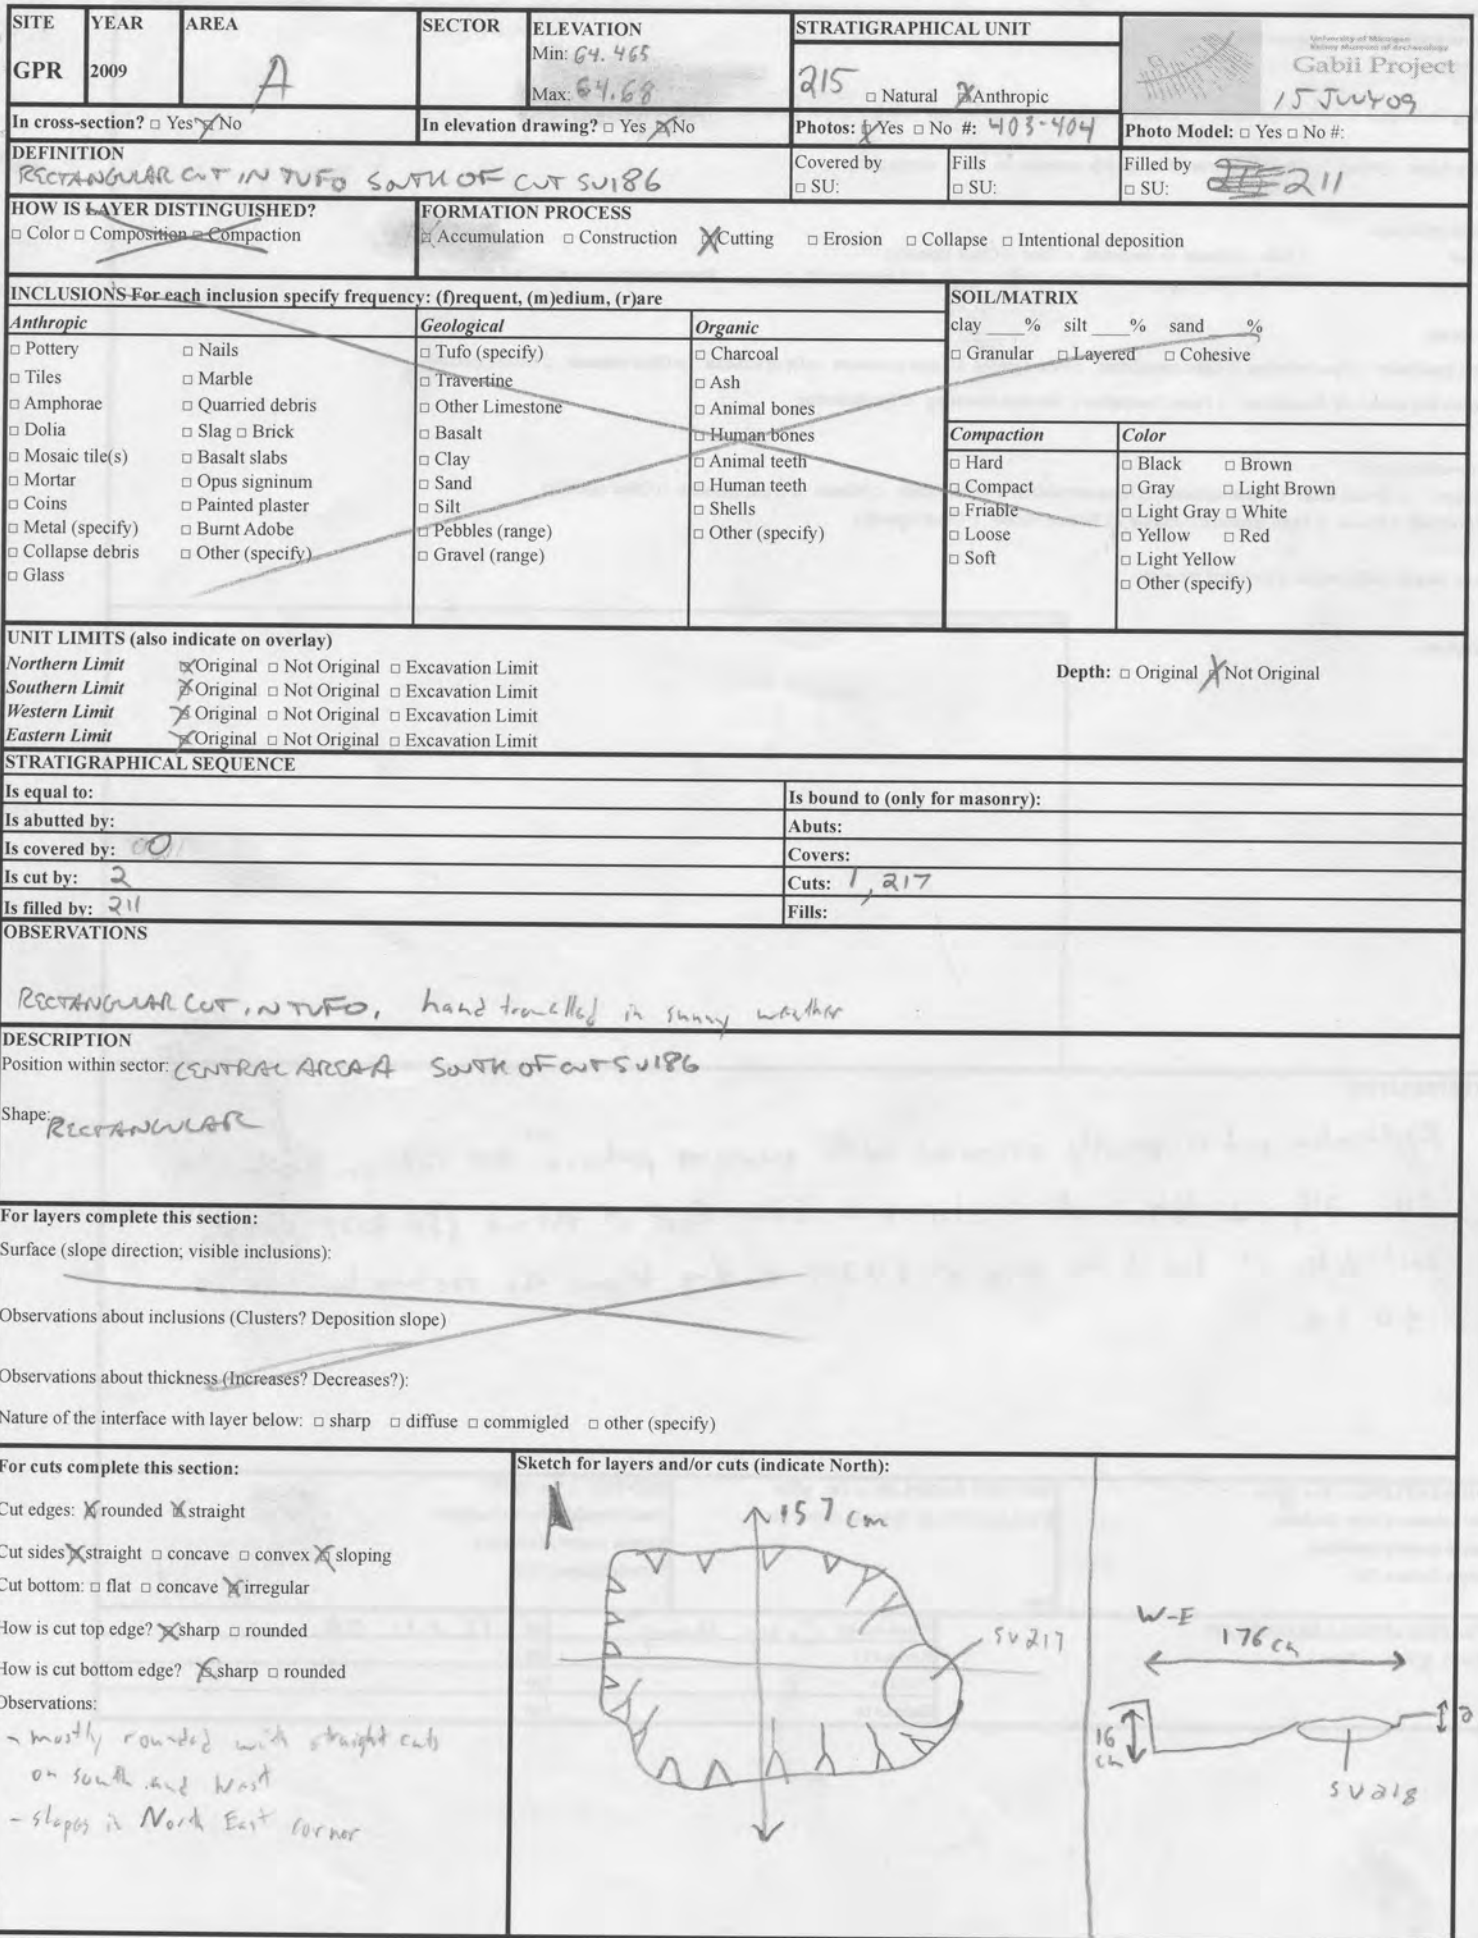 SITE YEAR AREA SECTOR ELEVATION STRATIGRAPHICAL UNIT
GPR 2009 A
Min: 64.465
Max: 64.68
215 □ Natural ☒ Anthropic
University of Michigan
Kelsey Museum of Archaeology
Gabii Project
In cross-section? □ Yes ☒ No In elevation drawing? □ Yes ☒ No Photos: ☒ Yes □ No #: 403-404 Photo Model: □ Yes □ No #:
DEFINITION
RECTANGULAR CUT IN TUFO SOUTH OF CUT SU186
Covered by
□ SU:
Fills
□ SU:
Filled by
□ SU: 211
HOW IS LAYER DISTINGUISHED?
□ Color □ Composition □ Compaction
FORMATION PROCESS
□ Accumulation □ Construction ☒ Cutting □ Erosion □ Collapse □ Intentional deposition
INCLUSIONS For each inclusion specify frequency: (f)requent, (m)edium, (r)are
Anthropic
□ Pottery □ Nails
□ Tiles □ Marble
□ Amphorae □ Quarried debris
□ Dolia □ Slag □ Brick
□ Mosaic tile(s) □ Basalt slabs
□ Mortar □ Opus signinum
□ Coins □ Painted plaster
□ Metal (specify) □ Burnt Adobe
□ Collapse debris □ Other (specify)
□ Glass
Geological
□ Tufo (specify)
□ Travertine
□ Other Limestone
□ Basalt
□ Clay
□ Sand
□ Silt
□ Pebbles (range)
□ Gravel (range)
Organic
□ Charcoal
□ Ash
□ Animal bones
□ Human bones
□ Animal teeth
□ Human teeth
□ Shells
□ Other (specify)
SOIL/MATRIX
clay ____% silt ____% sand ____%
□ Granular □ Layered □ Cohesive
Compaction
□ Hard
□ Compact
□ Friable
□ Loose
□ Soft
Color
□ Black □ Brown
□ Gray □ Light Brown
□ Light Gray □ White
□ Yellow □ Red
□ Light Yellow
□ Other (specify)
UNIT LIMITS (also indicate on overlay)
Northern Limit ☒ Original □ Not Original □ Excavation Limit
Southern Limit ☒ Original □ Not Original □ Excavation Limit
Western Limit ☒ Original □ Not Original □ Excavation Limit
Eastern Limit ☒ Original □ Not Original □ Excavation Limit
Depth: □ Original ☒ Not Original
STRATIGRAPHICAL SEQUENCE
Is equal to: Is bound to (only for masonry):
Is abutted by: Abuts:
Is covered by: Covers:
Is cut by: 2 Cuts: 1, 217
Is filled by: 211 Fills:
OBSERVATIONS
RECTANGULAR CUT IN TUFO, hand trowelled in sunny weather
DESCRIPTION
Position within sector: CENTRAL AREA A SOUTH OF CUT SU186
Shape: RECTANGULAR
For layers complete this section:
Surface (slope direction; visible inclusions):
Observations about inclusions (Clusters? Deposition slope)
Observations about thickness (Increases? Decreases?):
Nature of the interface with layer below: □ sharp □ diffuse □ commigled □ other (specify)
For cuts complete this section:
Cut edges: ☒ rounded ☒ straight
Cut sides ☒ straight □ concave □ convex ☒ sloping
Cut bottom: □ flat □ concave ☒ irregular
How is cut top edge? ☒ sharp □ rounded
How is cut bottom edge? ☒ sharp □ rounded
Observations:
- mostly rounded with straight cuts
on south and West
- slopes in North East corner
Sketch for layers and/or cuts (indicate North):
157 cm
SU217
W-E
176 cm
16
cm
SU218